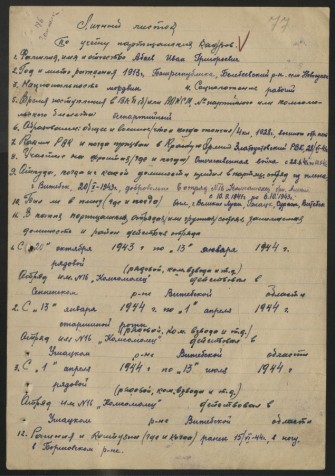 77
Личный листок
по учёту партизанских кадров.
1. Фамилия, имя и отчество Абаев Иван Григорьевич
2. Год и место рождения 1913г.
3. Национальность 4. Социальное рабочий
5. Время вступления в ВКП(б) или ВЛКСМ, № партбилета или комсомоль-
ского билета беспартийный
6. Образование: общее и военное (что, когда окончил) 4 кл. 1928г.
7. Каким РВК и когда призван в Красную Армию
8. Участие на фронтах (где и когда) Отечественная война с
9. Откуда, когда и с какой должности прибыл в партиз. отряд из плена
г. Витебск, 26/X-1943г.
10. Был ли в плену (где и когда) с 10.8.1941г. по 6.10.1943г.
11. В каких партизанских отрядах или группах состоял, занимаемая
должность и район действия отряда
1. С "26" октября 1943 г по "13" января 1944 г.
рядовой
(рядовой, ком. взвода и т.д.)
Отряд им. №16 "Комсомолец" действовал в
Сенненском р-не Витебской области
2. С "13" января 1944 г по "1" апреля 1944 г
старшиной роты
(рядовой, ком. взвода и т.д.)
Отряд им. №16 "Комсомолец" действовал в
Ушацком р-не Витебской области
3. С "1" апреля 1944 г по "13" июля 1944 г.
рядовой
(рядовой, ком. взвода и т.д.)
Отряд им. №16 "Комсомолец" действовал в
Ушацком р-не Витебской области
12. Ранения и контузии (где и когда) ранен 15/VI-44г. в ногу
в р-не.